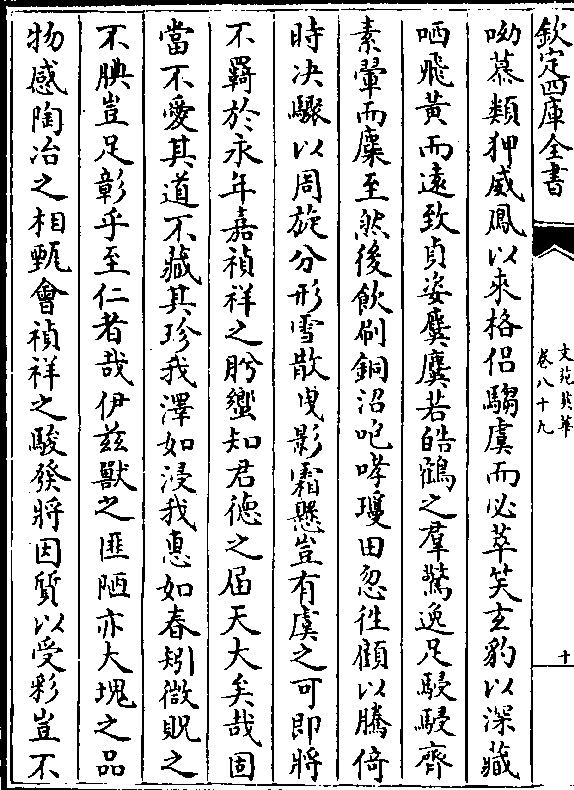 欽定四庫全書
文苑英華
卷八十九
十
呦慕類狎威鳳以來格侣騶虞而必萃笑玄豹以深藏
哂飛黄而遠致貞姿麌麌若皓鶴之羣驚逸足駸駸齊
素翬而麇至然後飲刷銅沼咆哮瓊田忽徃傾以騰倚
時决驟以周旋分形雪散曳影霜懸豈有虞之可即將
不羈於永年嘉禎祥之肹蠁知君德之届天大矣哉固
當不愛其道不藏其珍我澤如浸我惠如春矧微貺之
不腆豈足彰乎至仁者哉伊兹獸之匪陋亦大塊之品
物感陶冶之相甄會禎祥之駿發將因質以受彩豈不